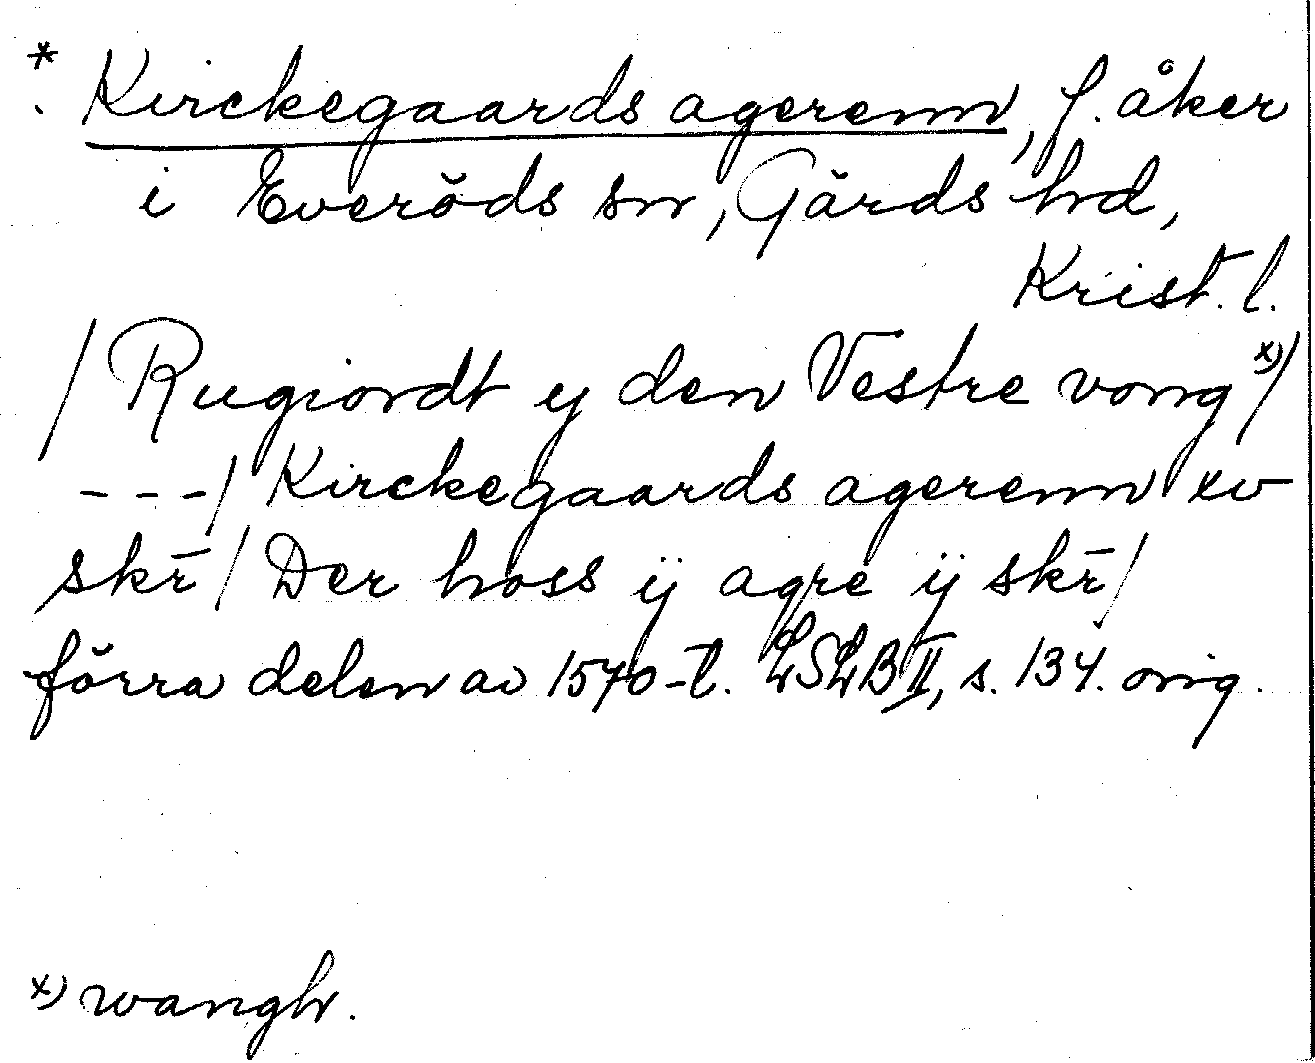 *. Kirckegaards agerenn, f. åker
i Everöds sn, Gärds hd,
Krist. l.
/ Rugiordt y den Vestre vong x)/
---/ Kirckegaards agerenn xv
skr̄ / Der hoss ij agre ij skr̄ /
förra delen av 1570-t. LSLB II, s. 134. orig.
x) wangh.